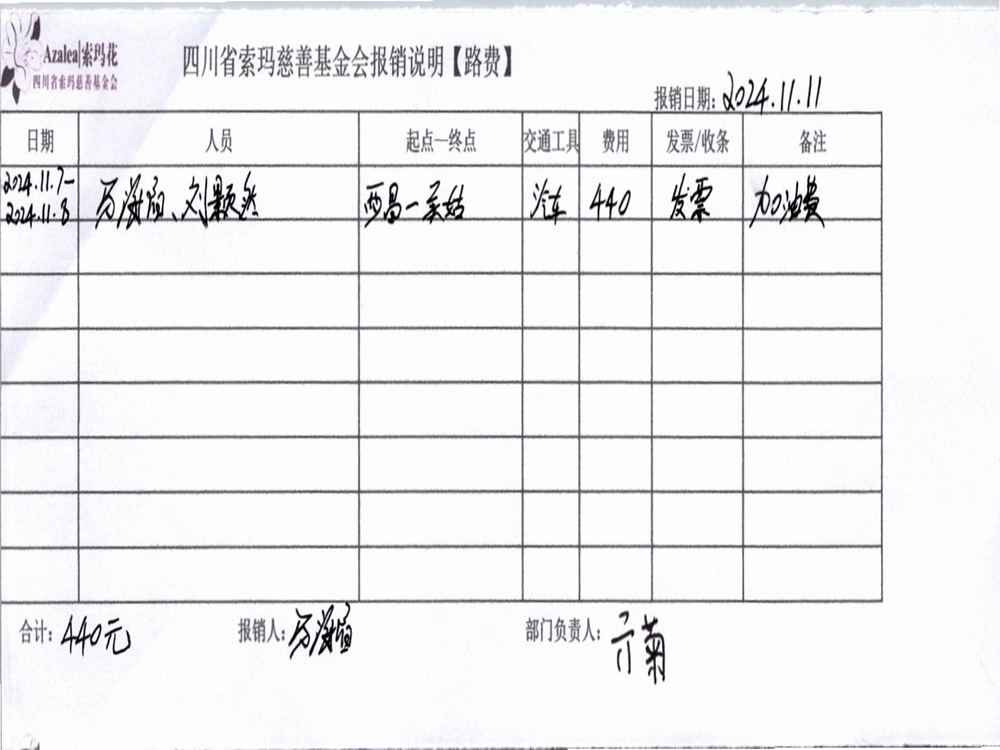 Azalea|索玛花
四川省索玛慈善基金会
四川省索玛慈善基金会报销说明【路费】
报销日期：2024.11.11
日期 人员 起点—终点 交通工具 费用 发票/收条 备注
2024.11.7-
2024.11.8 刘颢然 西昌—美姑 汽车 440 发票 加油费
合计：440元 报销人： 部门负责人：